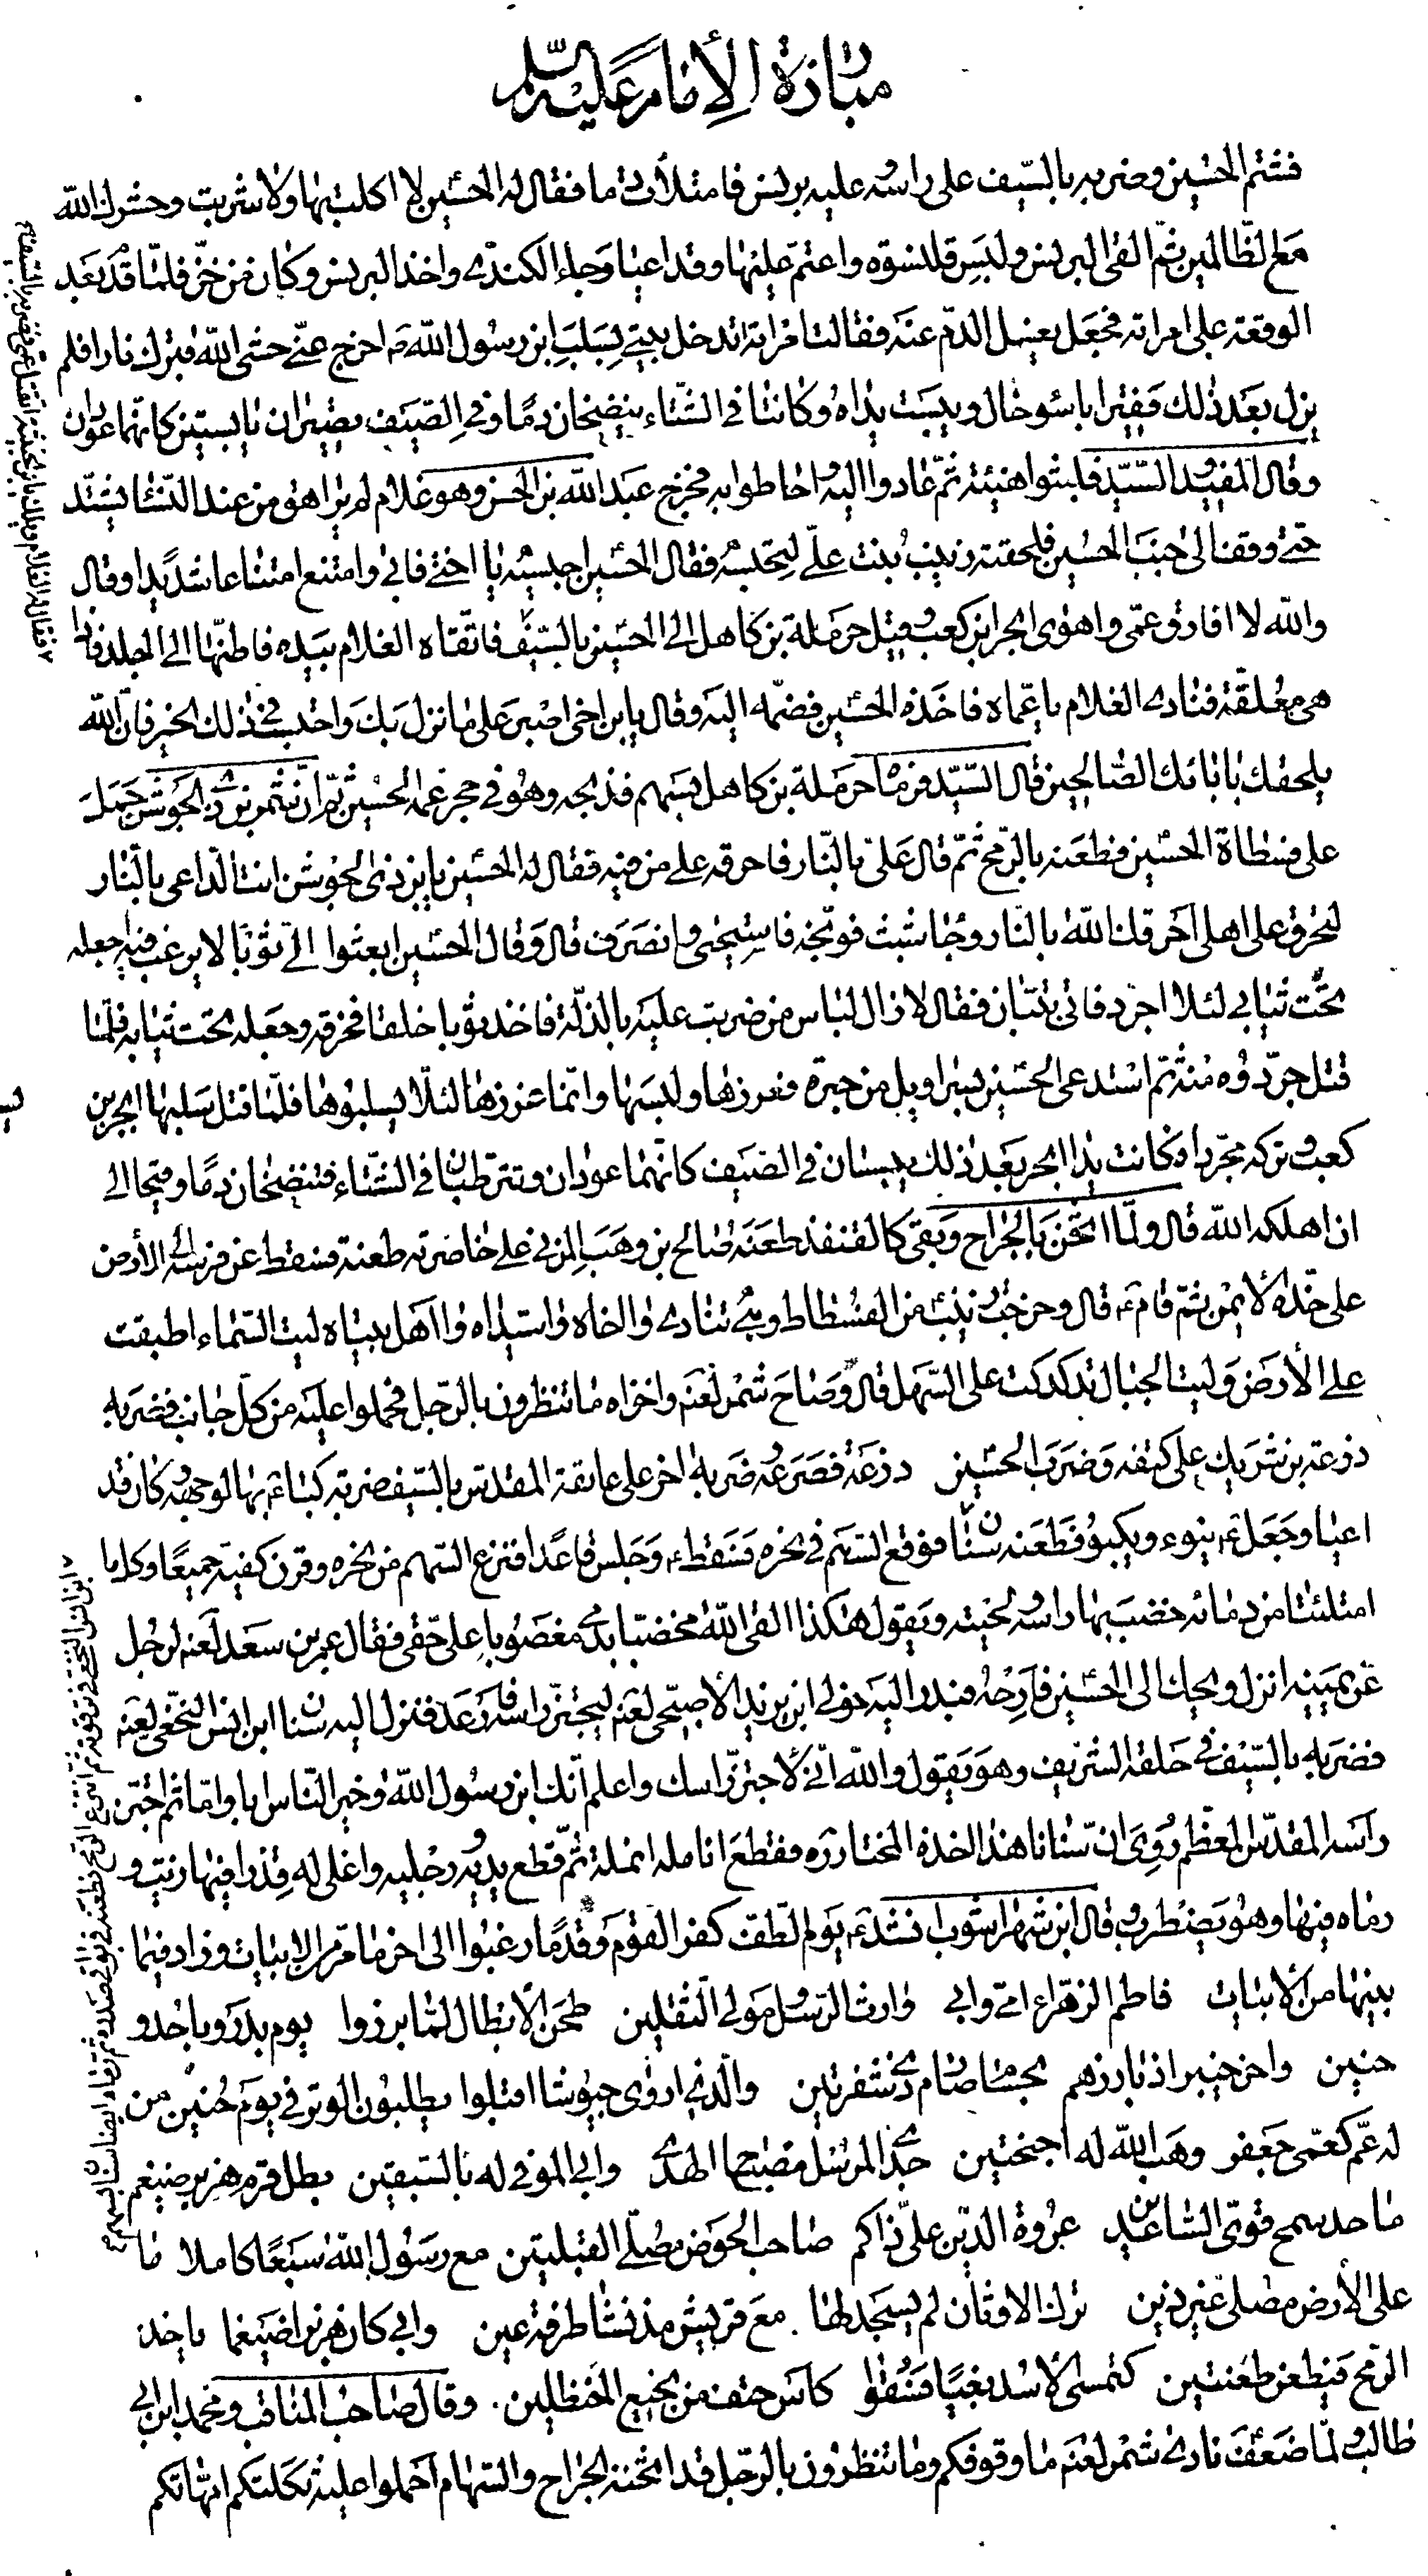 مبارزة الإمام عليه السلام
فشتم الحسين وضربه بالسيف على راسه وعليه برنس فامتلأت دما فقال له الحسين لا اكلت بها ولا شربت وحشرك الله
مع الظالمين ثم القى البرنس ولبس قلنسوة واعتم عليها وقد اعيا وجاء الكندى واخذ البرنس وكان من خز فلما قدم بعد
الوقعة على امراته فجعل يغسل الدم عنه فقالت امراته اتدخل بيتي بسلب ابن رسول الله ص اخرج عنى حشى الله قبرك نارا فلم
يزل بعد ذلك فقيرا باسوء حال ويبست يداه وكانتا فى الشتاء ينضحان دما وفى الصيف يصيران يابستين كانهما عودان
وقال المفيد والسيد فلبثوا هنيئة ثم عادوا اليه واحاطوا به فخرج عبد الله بن الحسن وهو غلام لم يراهق من عند النساء يشتد
حتى وقف الى جنب الحسين فلحقته زينب بنت على لتحبسه فقال الحسين احبسيه يا اختى فابى وامتنع امتناعا شديدا وقال
والله لا افارق عمى واهوى ابجر ابن كعب وقيل حرملة بن كاهل الى الحسين بالسيف فاتقاه الغلام بيده فاطنها الى الجلد فاذا
هى معلقة فنادى الغلام يا عماه فاخذه الحسين فضمه اليه وقال يابن اخى اصبر على ما نزل بك واحتسب فى ذلك الخير فان الله
يلحقك بابائك الصالحين قال السيد فرماه حرملة بن كاهل بسهم فذبحه وهو فى حجر عمه الحسين ثم ان شمر بن ذى الجوشن حمل
على فسطاط الحسين فطعنه بالرمح ثم قال على بالنار فاحرقه على من فيه فقال له الحسين يابن ذى الجوشن انت الداعى بالنار
لتحرق على اهلى احرقك الله بالنار وجاء شبث فوبخه فاستحيى وانصرف قال وقال الحسين ابعثوا الى ثوبا لا يرغب فيه اجعله
تحت ثيابى لئلا اجرد فاتى بتبان فقال لا ذاك لباس من ضربت عليه بالذلة فاخذ ثوبا خلقا فخرقه وجعله تحت ثيابه فلما
قتل جردوه منه ثم استدعى الحسين بسراويل من حبرة ففزرها ولبسها وانما فزرها لئلا يسلبوها فلما قتل سلبها ابجر بن
كعب وتركه مجردا فكانت يدا ابجر بعد ذلك ييبسان فى الصيف كانهما عودان وتترطبان فى الشتاء فتنضحان دما وقيحا الى
ان اهلكه الله قال ولما اثخن بالجراح وبقى كالقنفذ طعنه صالح بن وهب المزنى على خاصرته طعنة فسقط عن فرسه الى الأرض
على خده الأيمن ثم قام ع قال وخرجت زينب من الفسطاط وهى تنادى وا اخاه وا سيداه وا اهل بيتاه ليت السماء اطبقت
على الأرض وليت الجبال تدكدكت على السهل قال وصاح شمر لعنه واخزاه ما تنظرون بالرجل فحملوا عليه من كل جانب فضربه
ذرعة بن شريك على كتفه وضرب الحسين ذرعة فصرعه وضربه اخر على عاتقه المقدس بالسيف ضربة كبا ع بها لوجهه وكان قد
اعيا وجعل ع ينوء ويكبو فطعنه سنان فوقع السهم فى نحره فسقط ع وجلس قاعدا فنزع السهم من نحره وقرن كفيه جميعا وكلما
امتلئتا من دمائه خضب بها راسه ولحيته ويقول هكذا القى الله مخضبا بدمى مغصوبا على حقى فقال عمر بن سعد لعنه لرجل
عن يمينه انزل ويحك الى الحسين فارحه فبدر اليه خولى ابن يزيد الأصبحى لعنه ليجتز راسه فارعد فنزل اليه سنان ابن انس النخعى لعنه
فضربه بالسيف فى حلقه الشريف وهو يقول والله انى لأجتز راسك واعلم انك ابن رسول الله وخير الناس ابا واما ثم اجتز
راسه المقدس المعظم وروى ان سنانا هذا اخذه المختار ره فقطع انامله انملة انملة ثم قطع يديه ورجليه واغلى له قدرا فيها زيت و
رماه فيها وهو يضطرب وقال ابن شهراشوب انشد ع يوم الطف كفر القوم وقدما رغبوا الى اخر ما مر من الابيات وزاد فيما
بينها من الأبيات فاطم الزهراء امى وابى وارث الرسل ومولى الثقلين طحن الأبطال لما برزوا يوم بدر وباحد و
حنين واخو خيبر اذ بارزهم بحسام صارم ذى شفرتين والذى اردى جيوشا اقبلوا يطلبون الوتر فى يوم حنين من
له عم كعمى جعفر وهب الله له اجنحتين جدى المرسل مصباح الهدى وابى الموفى له بالبيعتين بطل قرم هزبر ضيغم
ماجد سمح قوى الساعدين عروة الدين على ذاكم صاحب الحوض مصلى القبلتين مع رسول الله سبعا كاملا ما
على الأرض مصلى غير ذين ترك الاوثان لم يسجد لها مع قريش مذ نشا طرفة عين وابى كان هزبرا ضيغما ياخذ
الرمح فيطعن طعنتين كتمشى الأسد بغيا فسقوا كاس حتف من نجيع الحنظلين. وقال صاحب المناقب ومحمد ابن ابى
طالب ولما ضعف نادى شمر لعنه ما وقوفكم وما تنظرون بالرجل قد اثخنته الجراح والسهام احملوا عليه ثكلتكم امهاتكم
فقال له الغلام ويلك يابن الخبيثة اتقتل عمى فضربه بالسيف
ابن انس النخعى فى ترقوته ثم انتزع الرمح فطعنه فى بوانى صدره ثم رماه ايضا سنان بسهم